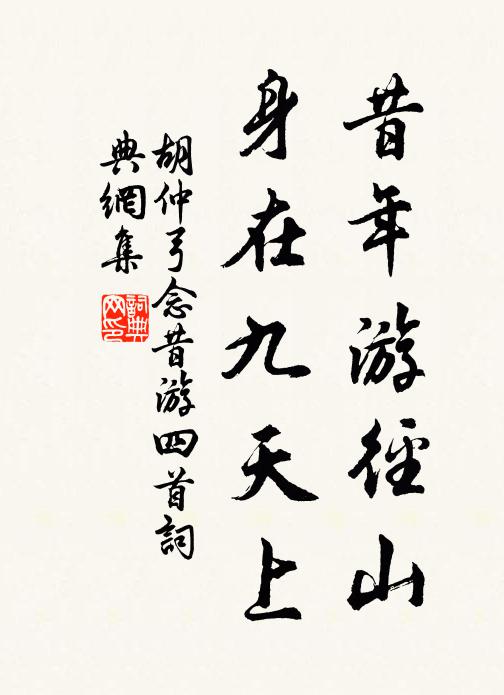 昔年游徑山
身在九天上
胡仲弓念昔游四首詞
典網集
詞典
网印